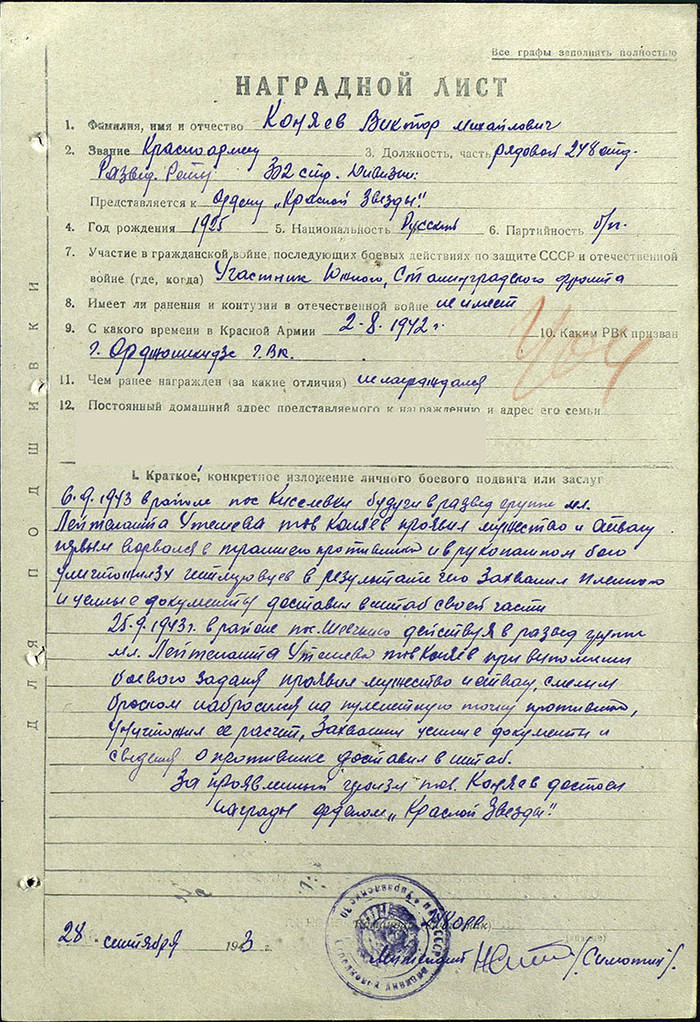 Все графы заполнять полностью
НАГРАДНОЙ ЛИСТ
1. Фамилия, имя и отчество Коняев Виктор Михайлович
2. Звание Красноармеец 3. Должность, часть рядовой 248 отд.
Развед. Роты 302 стр. дивизии:
Представляется к Ордену „Красной Звезды"
4. Год рождения 1925 5. Национальность Русский 6. Партийность б/п.
7. Участие в гражданской войне, последующих боевых действиях по защите СССР и отечественной
войне (где, когда) Участник Южного, Сталинградского фронта
8. Имеет ли ранения и контузии в отечественной войне не имеет
9. С какого времени в Красной Армии 2-8-1942 г. 10. Каким РВК призван
г. Орджоникидзе Г.В.К.
11. Чем ранее награжден (за какие отличия) не награждался
12. Постоянный домашний адрес представляемого к награждению и адрес его семьи
I. Краткое, конкретное изложение личного боевого подвига или заслуг
6.9.1943 в районе пос Киселевки будучи в развед группе мл.
Лейтенанта Утешева тов Коняев проявил мужество и отвагу
первым ворвался в траншею противника и в рукопашном бою
уничтожил 3х гитлеровцев в результате чего захватил пленного
и ценные документы доставил в штаб своей части
25.9.1943г. в районе пос. Шевченко действуя в развед группе
мл. Лейтенанта Утешева тов Коняев при выполнении
боевого задания проявил мужество и отвагу, смелым
броском набросился на пулеметную точку противника,
уничтожил ее расчет, захватил ценные документы и
сведения о противнике доставил в штаб.
За проявленный героизм тов. Коняев достоен
награды орденом „Красной Звезды"
28 сентября 1943 г.
Лейтенант
ДЛЯ ПОДШИВКИ